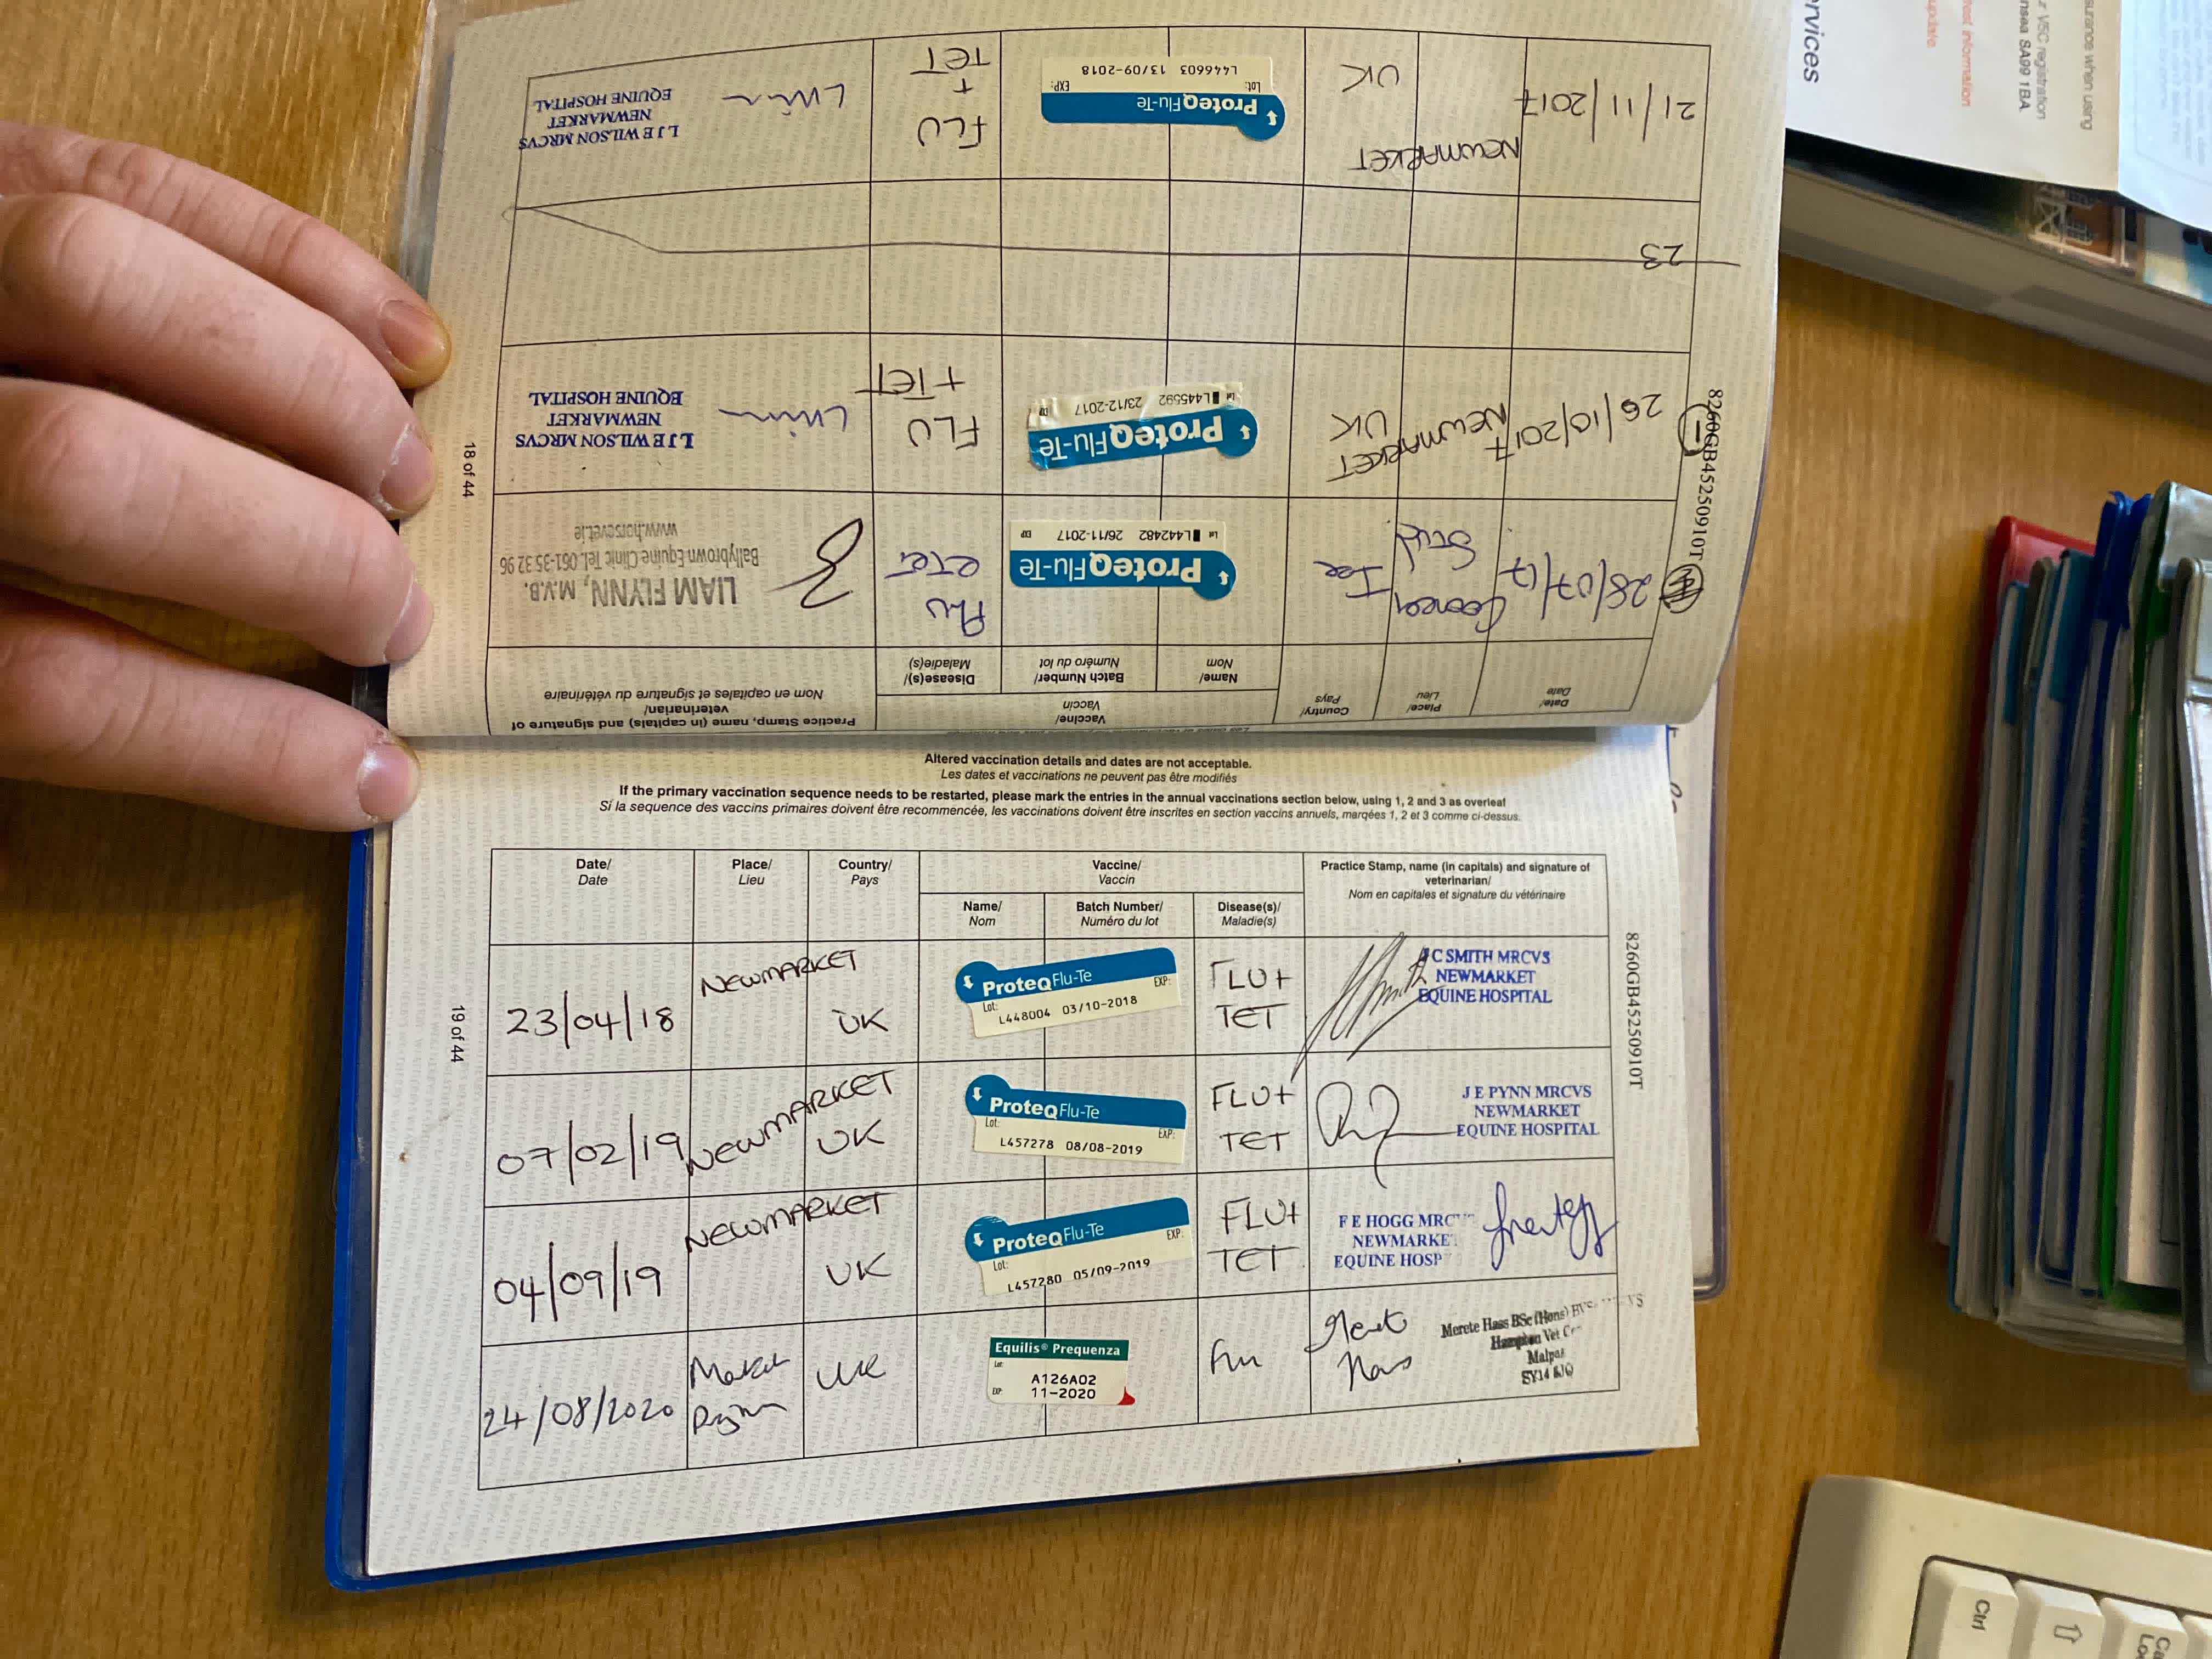 18 of 44
8260GB45250910T
Date/
Date
Place/
Lieu
Country/
Pays
Vaccine/
Vaccin
Name/
Nom
Batch Number/
Numéro du lot
Disease(s)/
Maladie(s)
Practice Stamp, name (in capitals) and signature of
veterinarian/
Nom en capitales et signature du vétérinaire
28/07/17
Stud
ProteqFlu-Te
Lot L442482 26/11-2017 EXP
Flu
LIAM FLYNN, M.V.B.
Ballybrown Equine Clinic Tel. 061-35 32 96
www.horsevet.ie
1
26/10/2017
NEWMARKET
UK
ProteqFlu-Te
Lot L445592 23/12-2017 EXP
FLU
+TET
L J E WILSON MRCVS
NEWMARKET
EQUINE HOSPITAL
23
21/11/2017
NEWMARKET
UK
ProteqFlu-Te
Lot: EXP:
L446603 13/09-2018
FLU
+
TET
L J E WILSON MRCVS
NEWMARKET
EQUINE HOSPITAL
Altered vaccination details and dates are not acceptable.
Les dates et vaccinations ne peuvent pas être modifiés
If the primary vaccination sequence needs to be restarted, please mark the entries in the annual vaccinations section below, using 1, 2 and 3 as overleaf
Si la sequence des vaccins primaires doivent être recommencée, les vaccinations doivent être inscrites en section vaccins annuels, marqées 1, 2 et 3 comme ci-dessus.
Date/
Date
Place/
Lieu
Country/
Pays
Vaccine/
Vaccin
Name/
Nom
Batch Number/
Numéro du lot
Disease(s)/
Maladie(s)
Practice Stamp, name (in capitals) and signature of
veterinarian/
Nom en capitales et signature du vétérinaire
23/04/18
NEWMARKET
UK
ProteqFlu-Te
Lot: EXP:
L448004 03/10-2018
FLU+
TET
C SMITH MRCVS
NEWMARKET
EQUINE HOSPITAL
07/02/19
NEWMARKET
UK
ProteqFlu-Te
Lot: EXP:
L457278 08/08-2019
FLU+
TET
J E PYNN MRCVS
NEWMARKET
EQUINE HOSPITAL
04/09/19
NEWMARKET
UK
ProteqFlu-Te
Lot: EXP:
L457280 05/09-2019
FLU+
TET
F E HOGG MRC
NEWMARKE
EQUINE HOSP
24/08/2020
UK
Equilis® Prequenza
Lot:
A126A02
EXP: 11-2020
Flu
Merete Hass BSc (Hons)
Hampton Vet
Malpas
SY14
19 of 44
8260GB45250910T
ervices
nsea SA99 1BA
V5C registration
surance when using
test information
update.
Ctrl